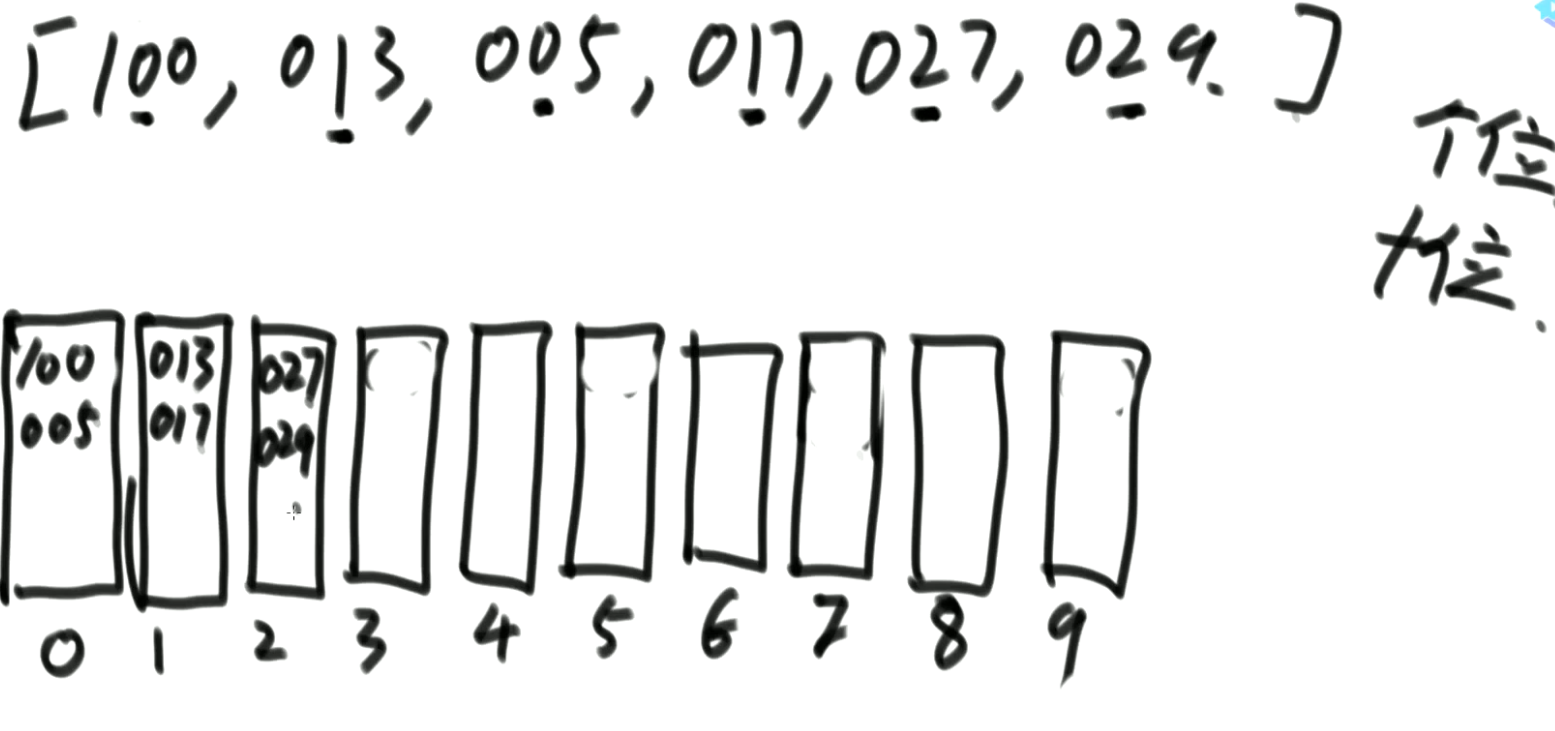 [100, 013, 005, 017, 027, 029. ]
个位
十位.
100 013 027
005 017 029
0 1 2 3 4 5 6 7 8 9